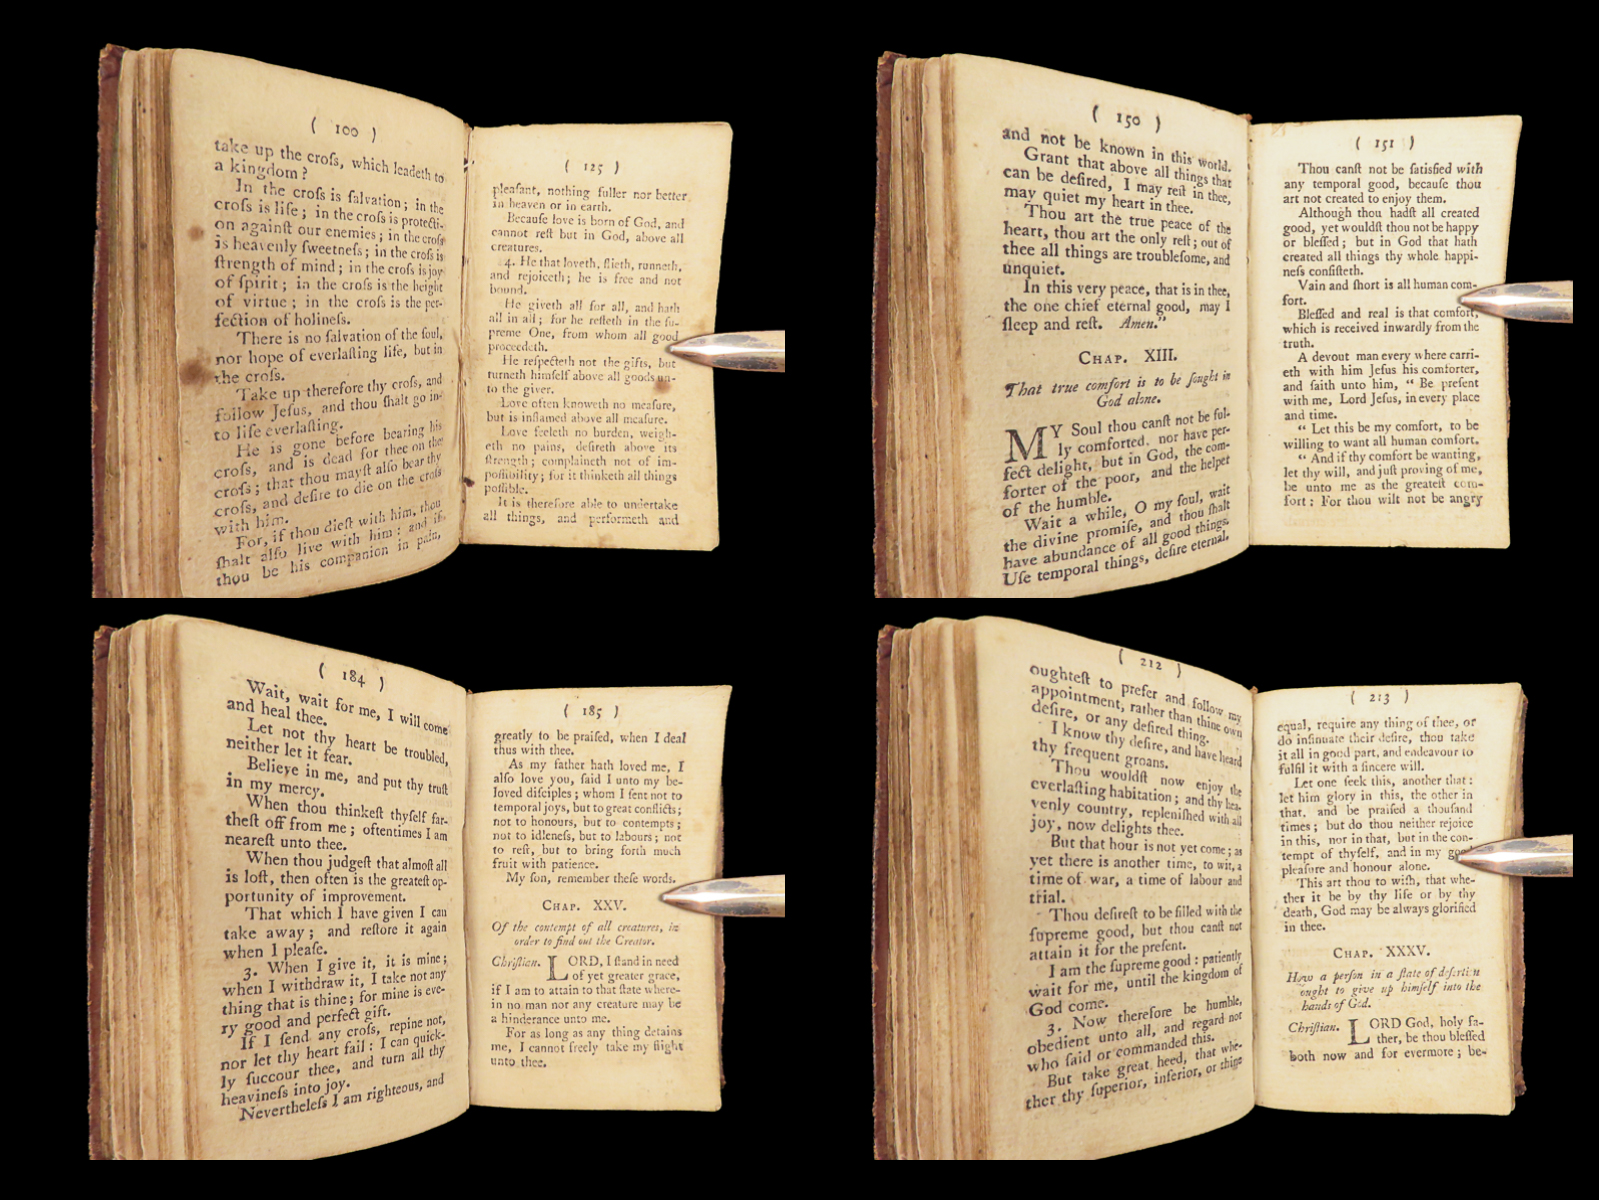 ( 100 )
take up the croſs, which leadeth to
a kingdom ?
In the croſs is ſalvation ; in the
croſs is life ; in the croſs is protecti-
on againſt our enemies ; in the croſs
is heavenly ſweetneſs ; in the croſs is
ſtrength of mind ; in the croſs is joy
of ſpirit ; in the croſs is the height
of virtue ; in the croſs is the per-
fection of holineſs.
There is no ſalvation of the ſoul,
nor hope of everlaſting life, but in
the croſs.
Take up therefore thy croſs, and
follow Jeſus, and thou ſhalt go in-
to life everlaſting.
He is gone before bearing his
croſs, and is dead for thee on the
croſs ; that thou mayſt alſo bear thy
croſs, and deſire to die on the croſs
with him.
For, if thou dieſt with him, thou
ſhalt alſo live with him : and if
thou be his companion in pain,
( 125 )
pleaſant, nothing fuller nor better
in heaven or in earth.
Becauſe love is born of God, and
cannot reſt but in God, above all
creatures.
4. He that loveth, flieth, runneth,
and rejoiceth ; he is free and not
bound.
He giveth all for all, and hath
all in all ; for he reſteth in the ſu-
preme One, from whom all good
proceedeth.
He reſpecteth not the gifts, but
turneth himſelf above all goods un-
to the giver.
Love often knoweth no meaſure,
but is inflamed above all meaſure.
Love feeleth no burden, weigh-
eth no pains, deſireth above its
ſtrength ; complaineth not of im-
poſſibility ; for it thinketh all things
poſſible.
It is therefore able to undertake
all things, and performeth and
( 150 )
and not be known in this world.
Grant that above all things that
can be deſired, I may reſt in thee,
may quiet my heart in thee.
Thou art the true peace of the
heart, thou art the only reſt ; out of
thee all things are troubleſome, and
unquiet.
In this very peace, that is in thee,
the one chief eternal good, may I
ſleep and reſt. Amen."
CHAP. XIII.
That true comfort is to be ſought in
God alone.
MY Soul thou canſt not be ful-
ly comforted, nor have per-
fect delight, but in God, the com-
forter of the poor, and the helper
of the humble.
Wait a while, O my ſoul, wait
the divine promiſe, and thou ſhalt
have abundance of all good things.
Uſe temporal things, deſire eternal.
( 151 )
Thou canſt not be ſatisfied with
any temporal good, becauſe thou
art not created to enjoy them.
Although thou hadſt all created
good, yet wouldſt thou not be happy
or bleſſed ; but in God that hath
created all things thy whole happi-
neſs conſiſteth.
Vain and ſhort is all human com-
fort.
Bleſſed and real is that comfort,
which is received inwardly from the
truth.
A devout man every where carri-
eth with him Jeſus his comforter,
and ſaith unto him, " Be preſent
with me, Lord Jeſus, in every place
and time.
" Let this be my comfort, to be
willing to want all human comfort.
" And if thy comfort be wanting,
let thy will, and juſt proving of me,
be unto me as the greateſt com-
fort : For thou wilt not be angry
( 184 )
Wait, wait for me, I will come
and heal thee.
Let not thy heart be troubled,
neither let it fear.
Believe in me, and put thy truſt
in my mercy.
When thou thinkeſt thyſelf far-
theſt off from me ; oftentimes I am
neareſt unto thee.
When thou judgeſt that almoſt all
is loſt, then often is the greateſt op-
portunity of improvement.
That which I have given I can
take away ; and reſtore it again
when I pleaſe.
3. When I give it, it is mine ;
when I withdraw it, I take not any
thing that is thine ; for mine is eve-
ry good and perfect gift.
If I ſend any croſs, repine not,
nor let thy heart fail : I can quick-
ly ſuccour thee, and turn all thy
heavineſs into joy.
Nevertheleſs I am righteous, and
( 185 )
greatly to be praiſed, when I deal
thus with thee.
As my father hath loved me, I
alſo love you, ſaid I unto my be-
loved diſciples ; whom I ſent not to
temporal joys, but to great conflicts ;
not to honours, but to contempts ;
not to idleneſs, but to labours ; not
to reſt, but to bring forth much
fruit with patience.
My ſon, remember theſe words.
CHAP. XXV.
Of the contempt of all creatures, in
order to find out the Creator.
Chriſtian. LORD, I ſtand in need
of yet greater grace,
if I am to attain to that ſtate where-
in no man nor any creature may be
a hinderance unto me.
For as long as any thing detains
me, I cannot freely take my flight
unto thee.
( 212 )
oughteſt to prefer and follow my
appointment, rather than thine own
deſire, or any deſired thing.
I know thy deſire, and have heard
thy frequent groans.
Thou wouldſt now enjoy the
everlaſting habitation ; and thy hea-
venly country, repleniſhed with all
joy, now delights thee.
But that hour is not yet come ; as
yet there is another time, to wit, a
time of war, a time of labour and
trial.
Thou deſireſt to be filled with the
ſupreme good, but thou canſt not
attain it for the preſent.
I am the ſupreme good : patiently
wait for me, until the kingdom of
God come.
3. Now therefore be humble,
obedient unto all, and regard not
who ſaid or commanded this.
But take great heed, that whe-
ther thy ſuperior, inferior, or thine
( 213 )
equal, require any thing of thee, or
do inſinuate their deſire, thou take
it all in good part, and endeavour to
fulfil it with a ſincere will.
Let one ſeek this, another that :
let him glory in this, the other in
that, and be praiſed a thouſand
times ; but do thou neither rejoice
in this, nor in that, but in the con-
tempt of thyſelf, and in my good
pleaſure and honour alone.
This art thou to wiſh, that whe-
ther it be by thy life or by thy
death, God may be always glorified
in thee.
CHAP. XXXV.
How a perſon in a ſtate of deſertion
ought to give up himſelf into the
hands of God.
Chriſtian. LORD God, holy fa-
ther, be thou bleſſed
both now and for evermore ; be-